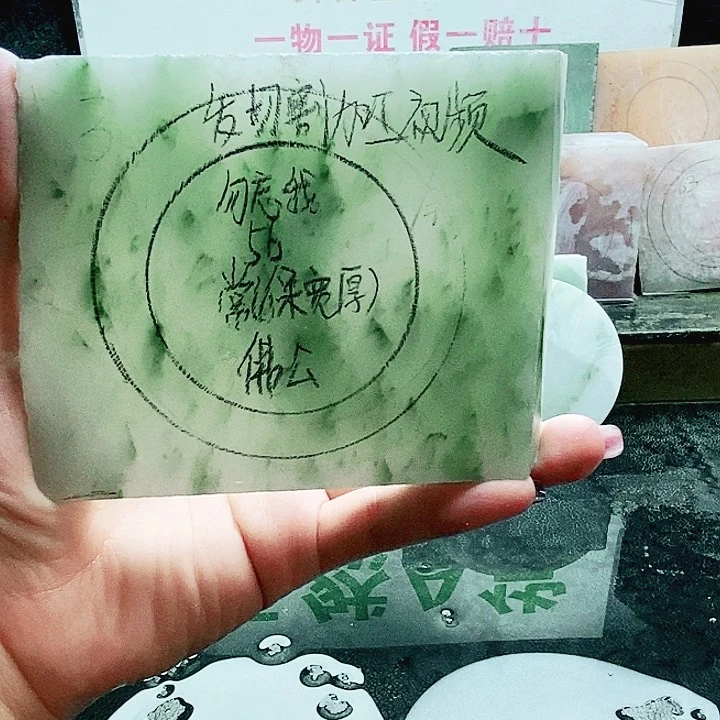 一物一证 假一赔十
发切割加工视频
勿忘我
56
常(保宽厚)
佛公